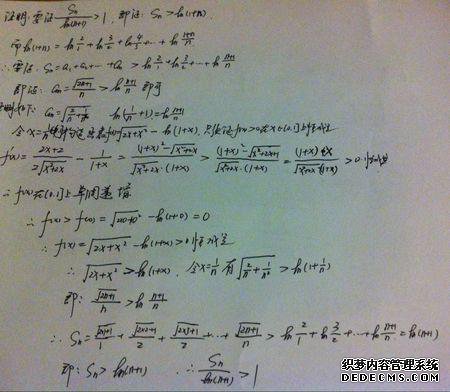 证明：要证 Sn/ln(n+1) > 1，即证：Sn > ln(1+n).
而 ln(1+n) = ln 2/1 + ln 3/2 + ln 4/3 + … + ln (1+n)/n
∴ 要证：Sn = a₁+a₂+…+an > ln 2/1 + ln 3/2 + … + ln (n+1)/n
即证：an = √(2n+1)/n > ln (n+1)/n 即可
an = √(2/n + 1/n²) ln(1/n + 1) = ln (1+n)/n
令 x = 1/n f(x) = √(2x+x²) − ln(1+x), f(x)>0 在 x∈(0,1] 上恒成立
f'(x) = (2x+2)/(2√(x²+2x)) − 1/(1+x) = ((1+x)²−√(x²+2x))/(√(x²+2x)·(1+x)) > ((1+x)²−√(x²+2x+1))/(√(x²+2x)·(1+x)) = (1+x)x/(√(x²+2x)(1+x)) > 0 恒成立
∴ f(x) 在 (0,1] 上单调递增
∴ f(x) > f(0) = √(2×0+0²) − ln(1+0) = 0
∴ f(x) = √(2x+x²) − ln(1+x) > 0 恒成立
∴ √(2x+x²) > ln(1+x). 令 x = 1/n 有 √(2/n + 1/n²) > ln(1+1/n)
即：√(2n+1)/n > ln (n+1)/n
∴ Sn = √(2×1+1)/1 + √(2×2+1)/2 + √(2×3+1)/3 + … + √(2n+1)/n > ln 2/1 + ln 3/2 + … + ln (n+1)/n = ln(n+1)
即：Sn > ln(n+1) ∴ Sn/ln(n+1) > 1
织梦内容管理系统
DEDECMS.COM